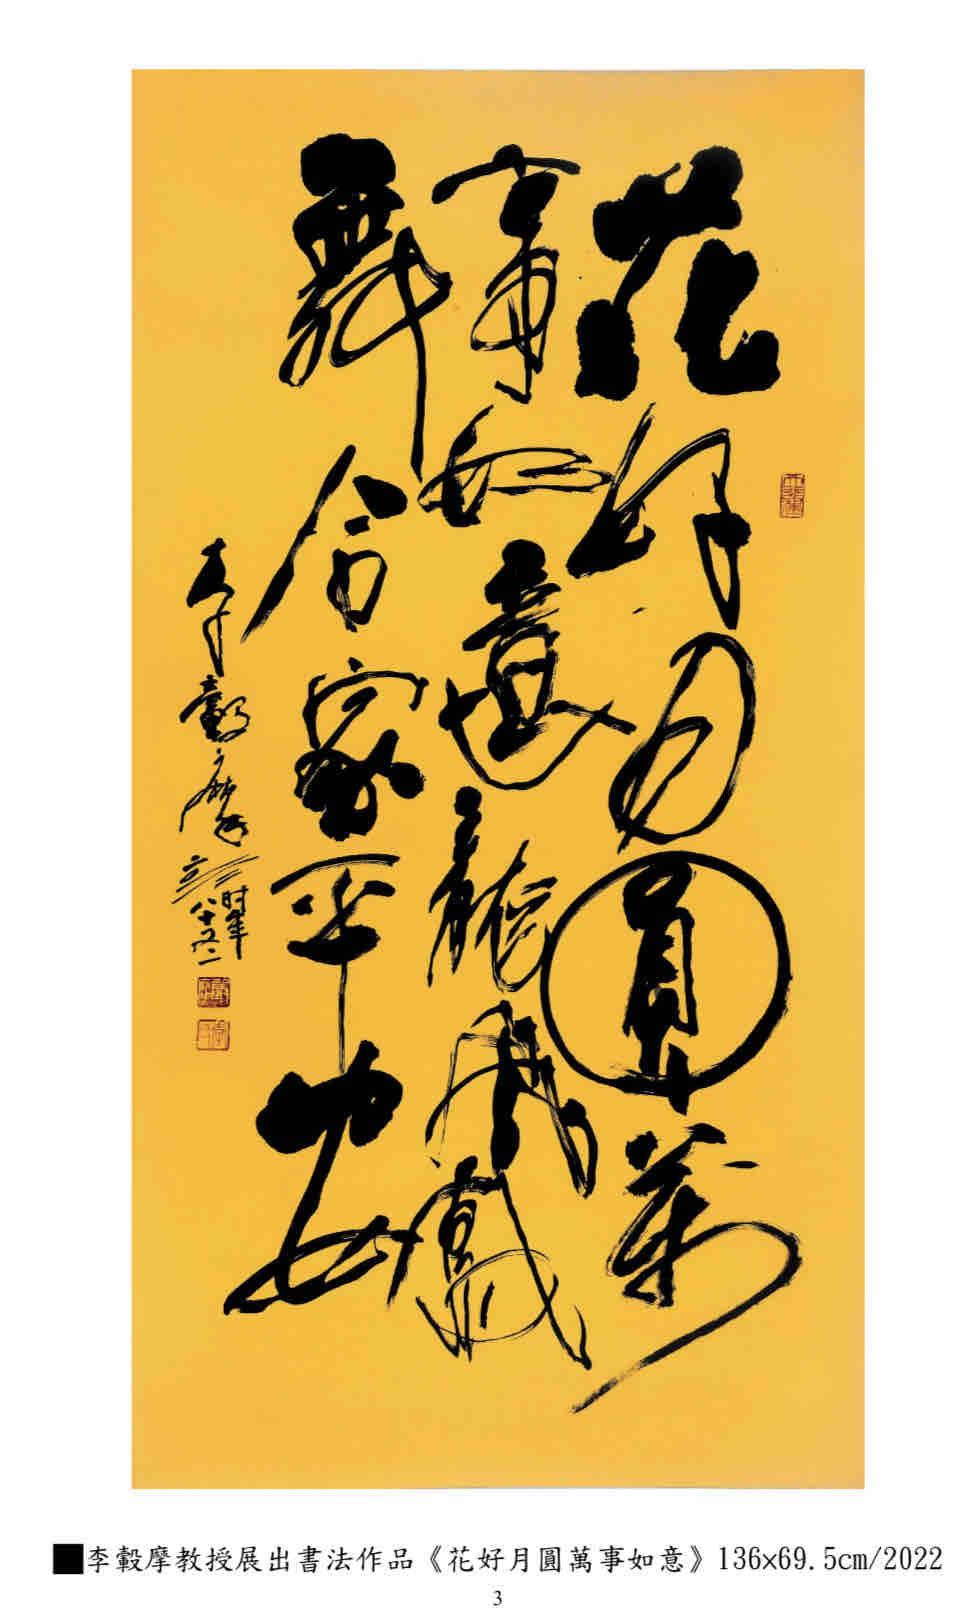 花好月圓萬
事如意龍飛鳳
舞合家平安
李轂摩
时年
八十又二
■李轂摩教授展出書法作品《花好月圓萬事如意》136×69.5cm/2022
3